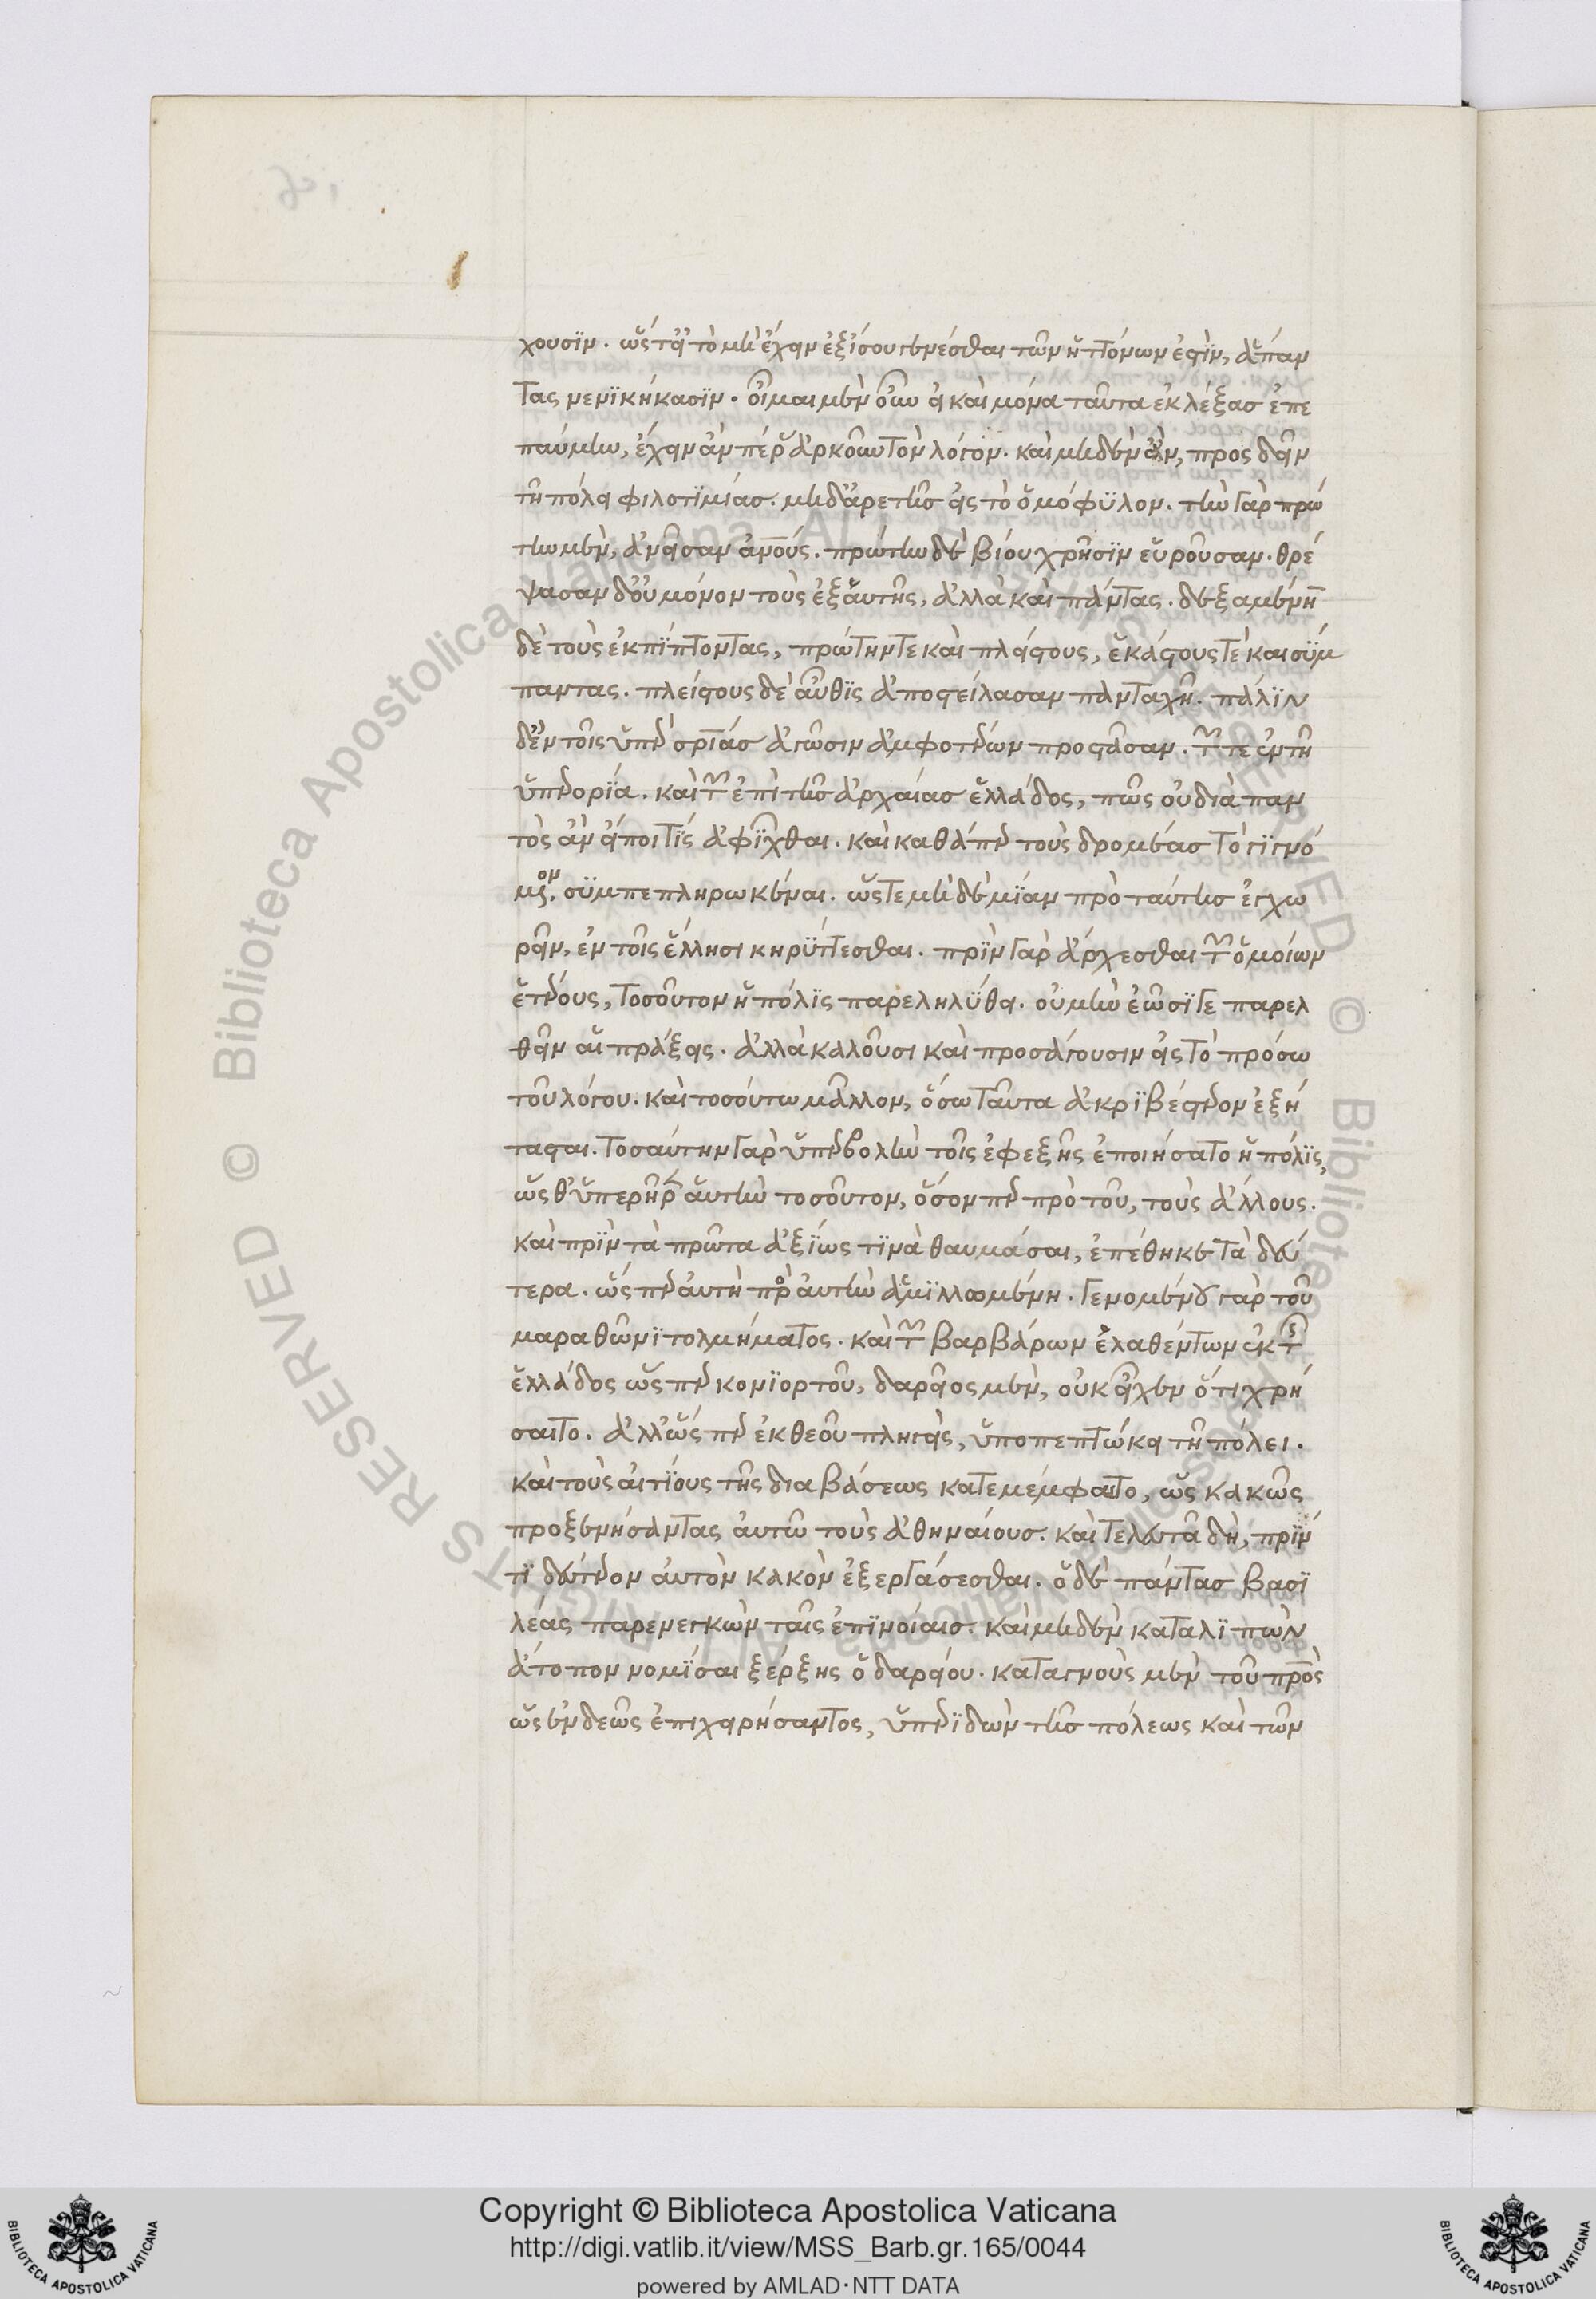 χουσϊν. ὥστ᾽ εἰ τὸ μὴ ἔχειν ἐξίσου γενέσθαι τῶν ἡττόνων ἐστὶν, ἅπαν
τας νενϊκήκασϊν. οἶμαι μὲν οὖν εἰ καὶ μόνα ταῦτα ἐκλέξας ἐπε
παύμην, ἔχειν ἄν περ ἀρκοῦν τὸν λόγον. καὶ μηδὲν ἂν, προσδεῖν
τῆ πόλει φιλοτϊμίας. μηδ᾽ ἀρετῆς εἰς τὸ ὁμόφϋλον. τὴν γὰρ πρώ
την μὲν, ἀνεῖσαν ἀνους. πρώτην δὲ βίου χρῆσϊν εὑροῦσαν. θρέ
ψασαν δ᾽ οὐ μόνον τοὺς ἐξ αὑτῆς, ἀλλὰ καὶ πάντας. δεξαμένην
δὲ τοὺς ἐκπϊπτοντας, πρώτην τε καὶ πλείστους, ἑκάστους τὲ καὶ σύμ
παντας. πλείστους δὲ αὖθϊς ἀποστείλασαν πανταχῆ. πάλϊν
δ᾽ ἐν τοῖς ὑπὲρ σρίας ἀγῶσιν ἀμφοτέρων προστᾶσαν. τῶν τε ἐν τῆ
ὑπερορϊα. καὶ τῶν ἐπὶ τῆς ἀρχαίας ἑλλάδος, πῶς οὐ διὰ παν
τὸς ἂν εἴποι τὶς ἀφῖχθαι. καὶ καθάπερ τοὺς δρομέας τὸ γϊγνό
μενον, σϋμπεπληρωκέναι. ὥστε μὴ δὲ μϊαν πρὸ ταύτης ἐγχω
ρεῖν, ἐν τοῖς ἕλλησι κηρϋττεσθαι. πρϊν γὰρ ἄρχεσθαι τῶν ὁμοίων
ἑτέρους, τοσοῦτον ἡ πόλϊς παρεληλϋθει. οὐ μὴν ἐῶσϊ γε παρελ
θεῖν αἱ πράξεις. ἀλλὰ καλοῦσι καὶ προσάγουσιν εἰς τὸ πρόσω
τοῦ λόγου. καὶ τοσούτω μᾶλλον, ὅσω ταῦτα ἀκρϊβέστερον ἐξή
τασται. τοσαύτην γὰρ ὑπερβολὴν τοῖς ἐφεξῆς ἐποιήσατο ἡ πόλϊς,
ὥσθ᾽ ὑπερῆρεν αὑτὴν τοσοῦτον, ὅσον περ πρὸ τοῦ, τοὺς ἄλλους.
καὶ πρϊν τὰ πρῶτα ἀξϊως τϊνὰ θαυμάσαι, ἐπέθηκε τὰ δεύ
τερα. ὥσπερ αὐτὴ πρὸς αὐτὴν ἁμϊλλωμένη. γενομένου γὰρ τοῦ
μαραθῶνϊ τολμήματος. καὶ τῶν βαρβάρων ἐλαθέντων ἐκ τῆς
ἑλλάδος ὥσπερ κονϊορτοῦ, δαρεῖος μὲν, οὐκ εἶχεν ὅτι χρή
σαιτο. ἀλλ᾽ ὥσπερ ἐκ θεοῦ πληγεὶς, ὑποπεπτώκει τῆ πόλει.
καὶ τοὺς αἰτϊους τῆς διαβάσεως κατεμέμφατο, ὡς κακῶς
προξενήσαντας αὐτῶ τοὺς ἀθηναίους. καὶ τελευτᾶ δὴ, πρϊν
τϊ δεύτερον αὐτὸν κακὸν ἐξεργάσεσθαι. ὁ δὲ πάντας βασϊ
λέας παρενεγκὼν ταῖς ἐπϊνοίαις. καὶ μηδὲν καταλϊπὼν
ἄτοπον νομϊσαι ξέρξης ὁ δαρείου. καταγνοὺς μὲν τοῦ προς
ὡς ἐνδεῶς ἐπιχειρήσαντος, ὑπερϊδὼν τῆς πόλεως καὶ τῶν
Copyright © Biblioteca Apostolica Vaticana
http://digi.vatlib.it/view/MSS_Barb.gr.165/0044
powered by AMLAD·NTT DATA